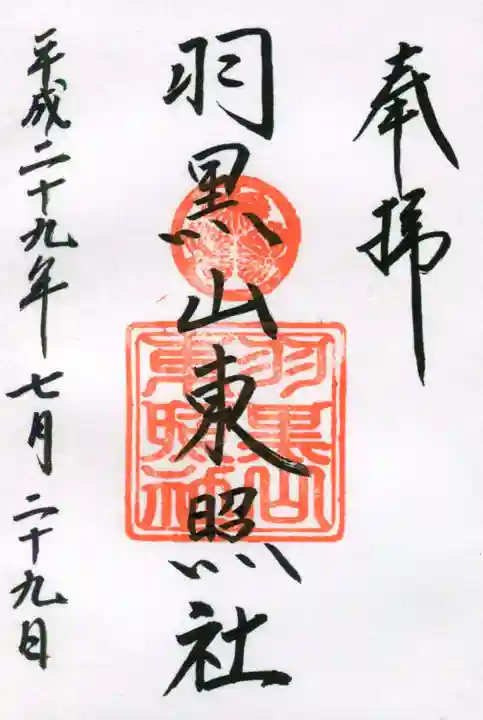 奉拝
羽黒山東照社
羽黒山
東照社
平成二十九年七月二十九日